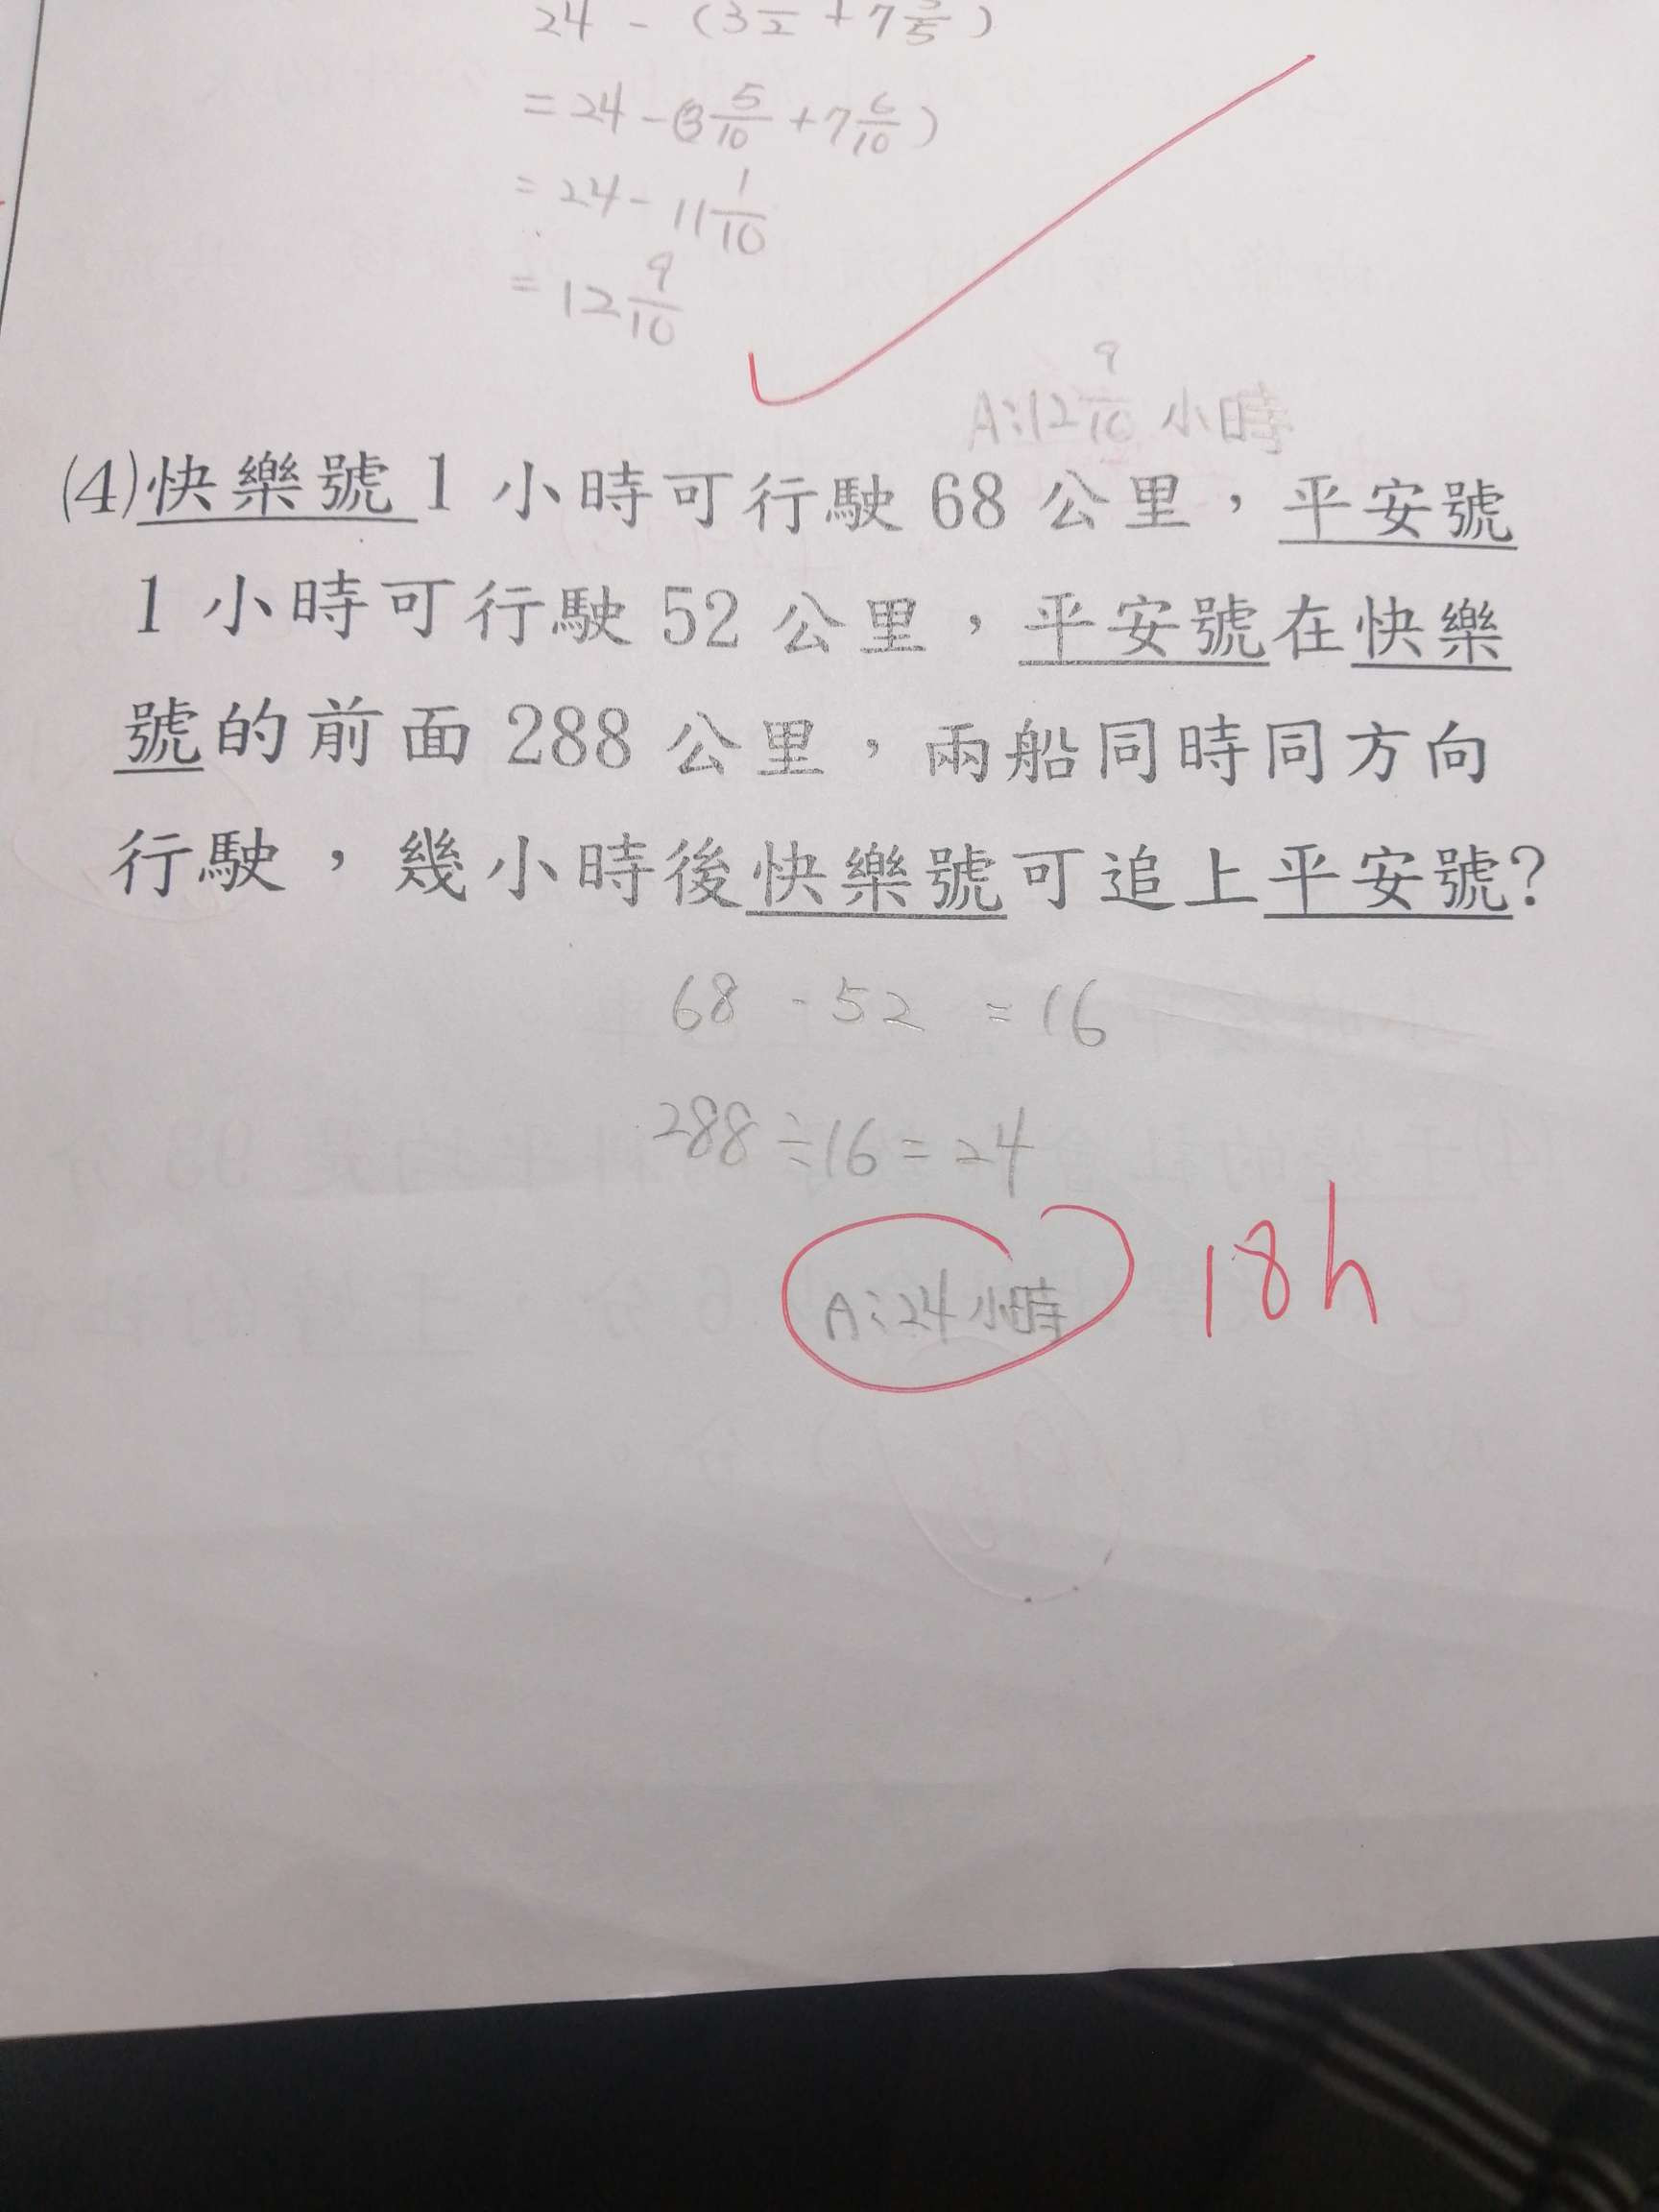 24 - (3 1/2 + 7 3/5)
= 24 - (3 5/10 + 7 6/10)
= 24 - 11 1/10
= 12 9/10
A:12 9/10 小時
(4)快樂號1小時可行駛68公里，平安號
1小時可行駛52公里，平安號在快樂
號的前面288公里，兩船同時同方向
行駛，幾小時後快樂號可追上平安號?
68 - 52 = 16
288÷16=24
A:24小時
18h